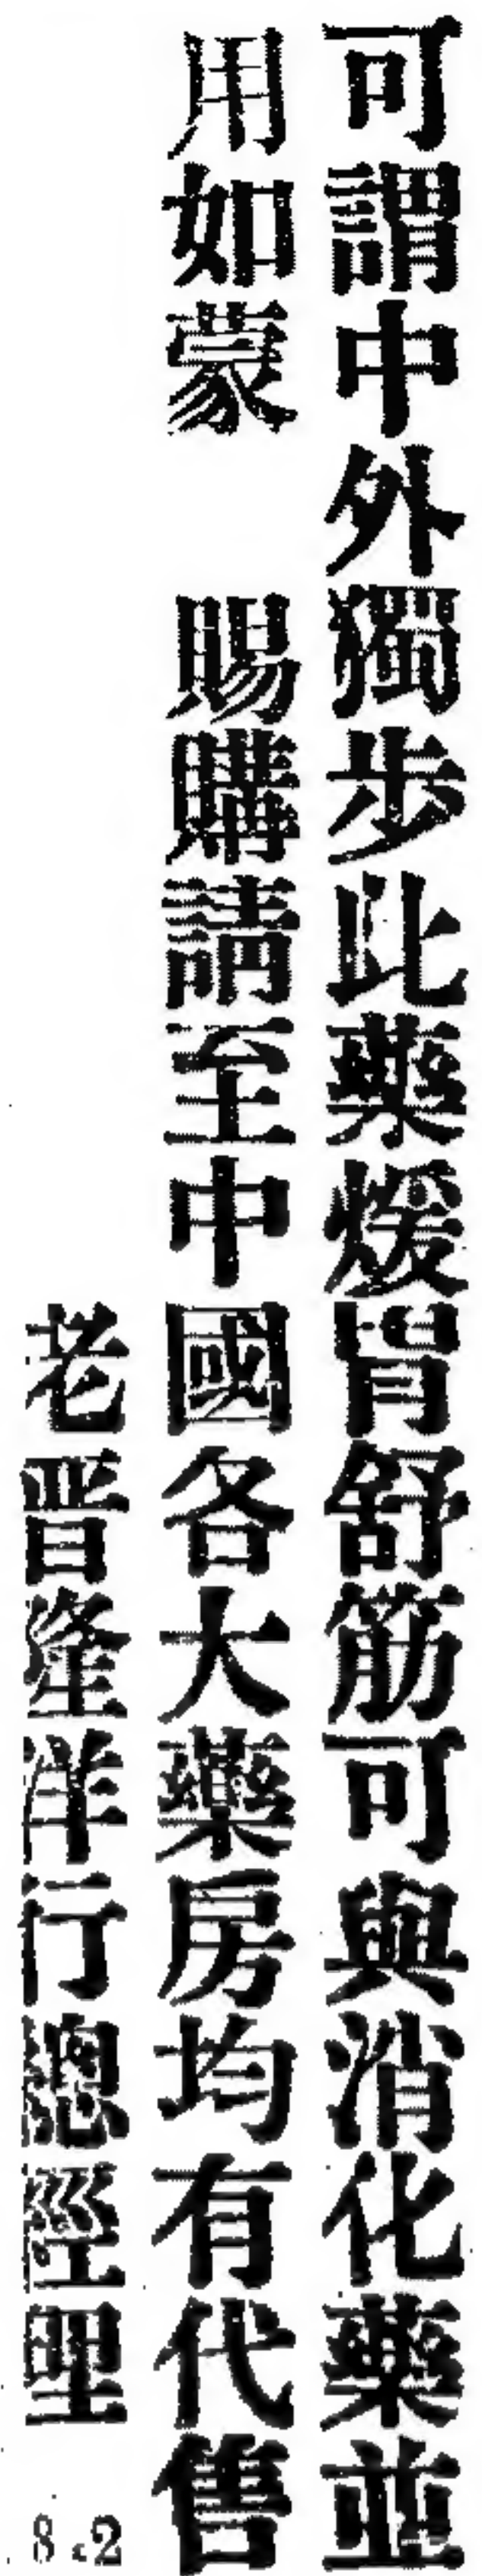 可謂中外獨步此藥煖胃舒筋可與消化藥並
用如蒙　賜購請至中國各大藥房均有代售
老晋隆洋行總經理 8.2